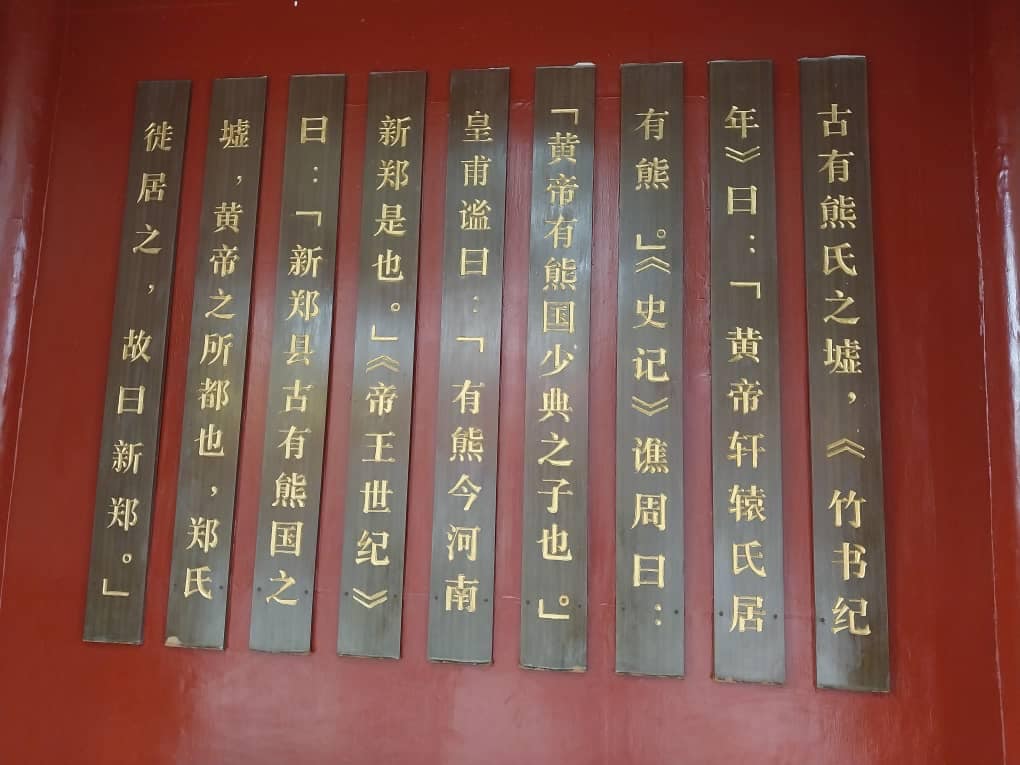 古有熊氏之墟，《竹书纪
年》曰：「黄帝轩辕氏居
有熊。」《史记》谯周曰：
「黄帝有熊国少典之子也。」
皇甫谧曰：「有熊今河南
新郑是也。」《帝王世纪》
曰：「新郑县古有熊国之
墟，黄帝之所都也，郑氏
徙居之，故曰新郑。」